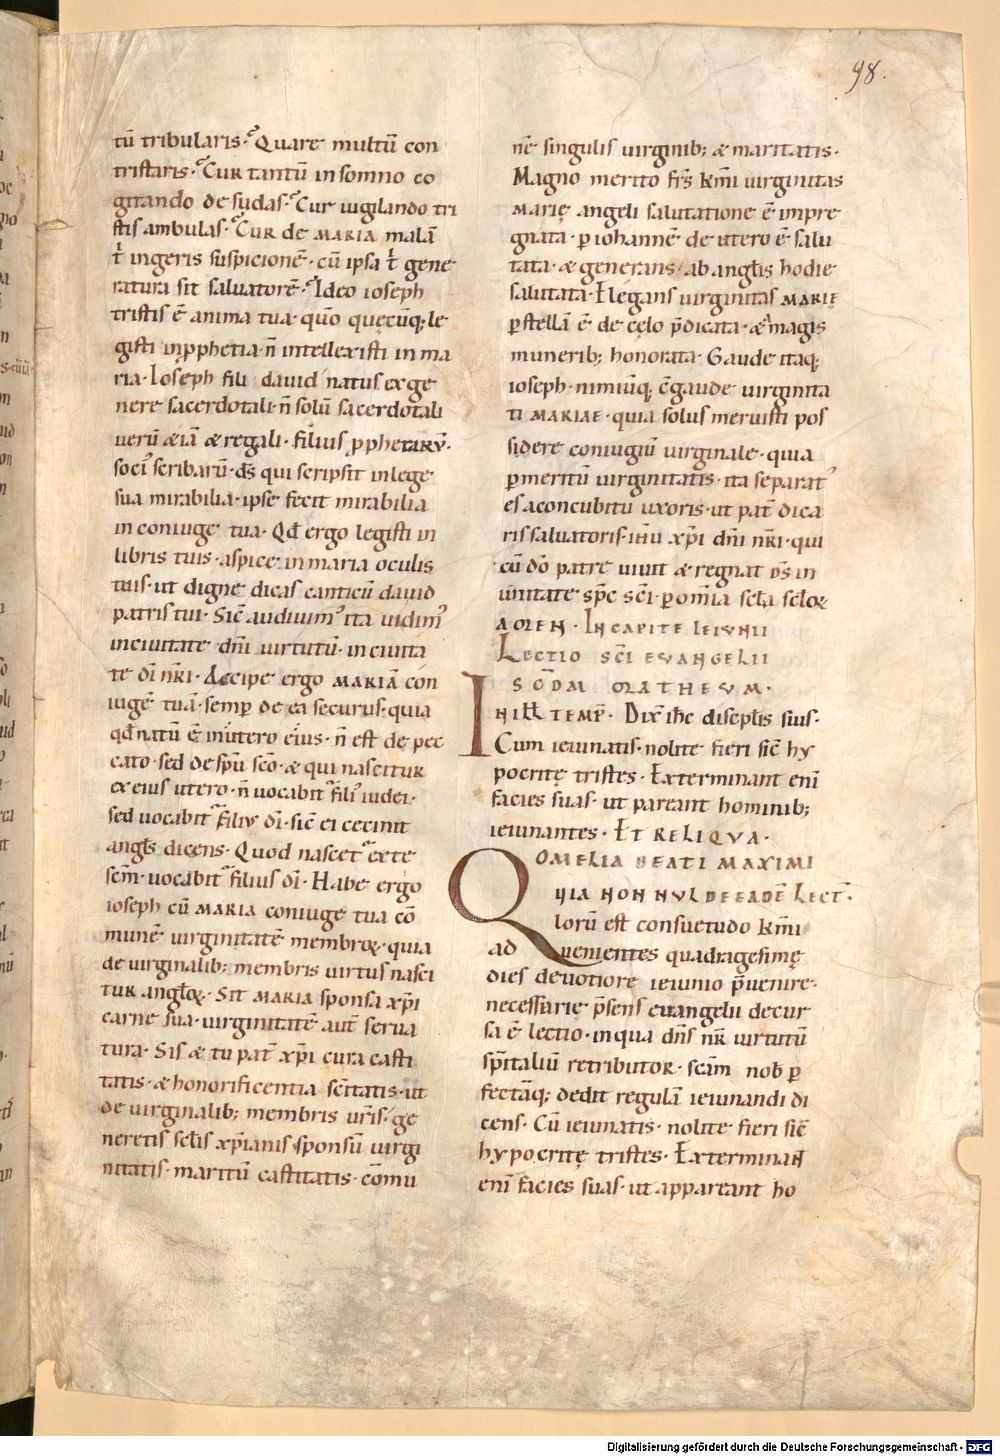 98.
tū tribularis. Quare multū con
tristaris. Cur tantū in somno co
gitando desudas. Cur vigilando tri
stis ambulas. Cur de MARIA malā
t̄ ingeris suspicionē. cū ipsa t̄ gene
ratura sit salvatorē. Ideo ioseph
tristis ē anima tua. quō quęcūq; le
gisti in ꝓphetia. n̄ intellexisti in ma
ria. Ioseph fili david natus ex ge
nere sacerdotali. n̄ solū sacerdotali
verū & iā & regali. filius ꝓphetarū.
soci᾿ scribarū. ds̄ qui scripsit in lege
sua mirabilia. ipse fecit mirabilia
in coniuge tua. Qd̄ ergo legisti in
libris tuis. aspice in maria oculis
tuis. ut digne dicas canticū david
patris tui. Sic̄ audivim᾿ ita vidim᾿
in civitate dn̄i virtutū. in civita
te dī nr̄i. Accipe ergo MARIĀ con
iugē tuā. semꝑ de ea securus. quia
qd̄ natū ē in utero eius. n̄ est de pec
cato. sed de sp̄u sc̄o. & qui nascitur
ex eius utero. n̄ vocabit᾿ fili᾿ iudei.
sed vocabit᾿ filius dī. sic̄ ei cecinit
angl̄s dicens. Quod nascet᾿ ex te
sc̄m. vocabit᾿ filius dī. Habe ergo
ioseph cū MARIA coniuge tua cō
munē virginitatē membroꝝ. quia
de virginalib; membris virtus nasci
tur angl̄oꝝ. Sit MARIA sponsa xp̄i
carne sua. virginitatē aut̄ serva
tura. Sis & tu pat᾿ xp̄i cura casti
tatis. & honorificentia sc̄itatis. ut
de virginalib; membris vr̄is. ge
neretis scl̄is xp̄ianis sponsū virgi
nitatis. maritū castitatis. cōmu
nē singulis virginib; & maritatis.
Magno merito fr̄s km̄i virginitas
marię angeli salutatione ē impre
gnata. ꝑ iohannē de utero ē salu
tata. & generans ab angl̄is hodie
salutata. Elegans virginitas MARIĘ
ꝑ stellā ē de cęlo p̄dicata. & a magis
munerib; honorata. Gaude itaq;
ioseph. nimiūq; cōgaude virginita
ti MARIAE. quia solus meruisti pos
sidere coniugiū virginale. quia
ꝑ meritū virginitatis. ita separat᾿
es a concubitu uxoris. ut pat᾿ dica
ris salvatoris. ih̄u xp̄i dn̄i nr̄i. qui
cū dō patre vivit & regnat ds̄ in
unitate sp̄c sc̄i. ꝑ om̄ia scl̄a scl̄oꝝ
AMEN. IN CAPITE IEIUNII
LECTIO SC̄I EVANGELII
SCDM MATHEUM.
IN ILL̄ TEMP̄. Dix̄ ih̄c discipl̄is suis.
Cum ieiunatis. nolite fieri sic̄ hy
pocritę tristes. Exterminant enī
facies suas. ut pareant hominib;
ieiunantes. ET RELIQUA.
OMELIA BEATI MAXIMI
QUIA NONNUL DE EADĒ LECT̄.
lorū est consuetudo km̄i
ad venientes quadragesimę
dies devotiore ieiunio p̄venire.
necessarie p̄sens evangelii decur
sa ē lectio. in qua dn̄s nr̄ virtutū
sp̄italiū retributor. scām nob ꝑ
fectāq; dedit regulā ieiunandi di
cens. Cū ieiunatis. nolite fieri sic̄
hypocritę tristes. Exterminan
enī facies suas. ut appareant ho
Digitalisierung gefördert durch die Deutsche Forschungsgemeinschaft - DFG